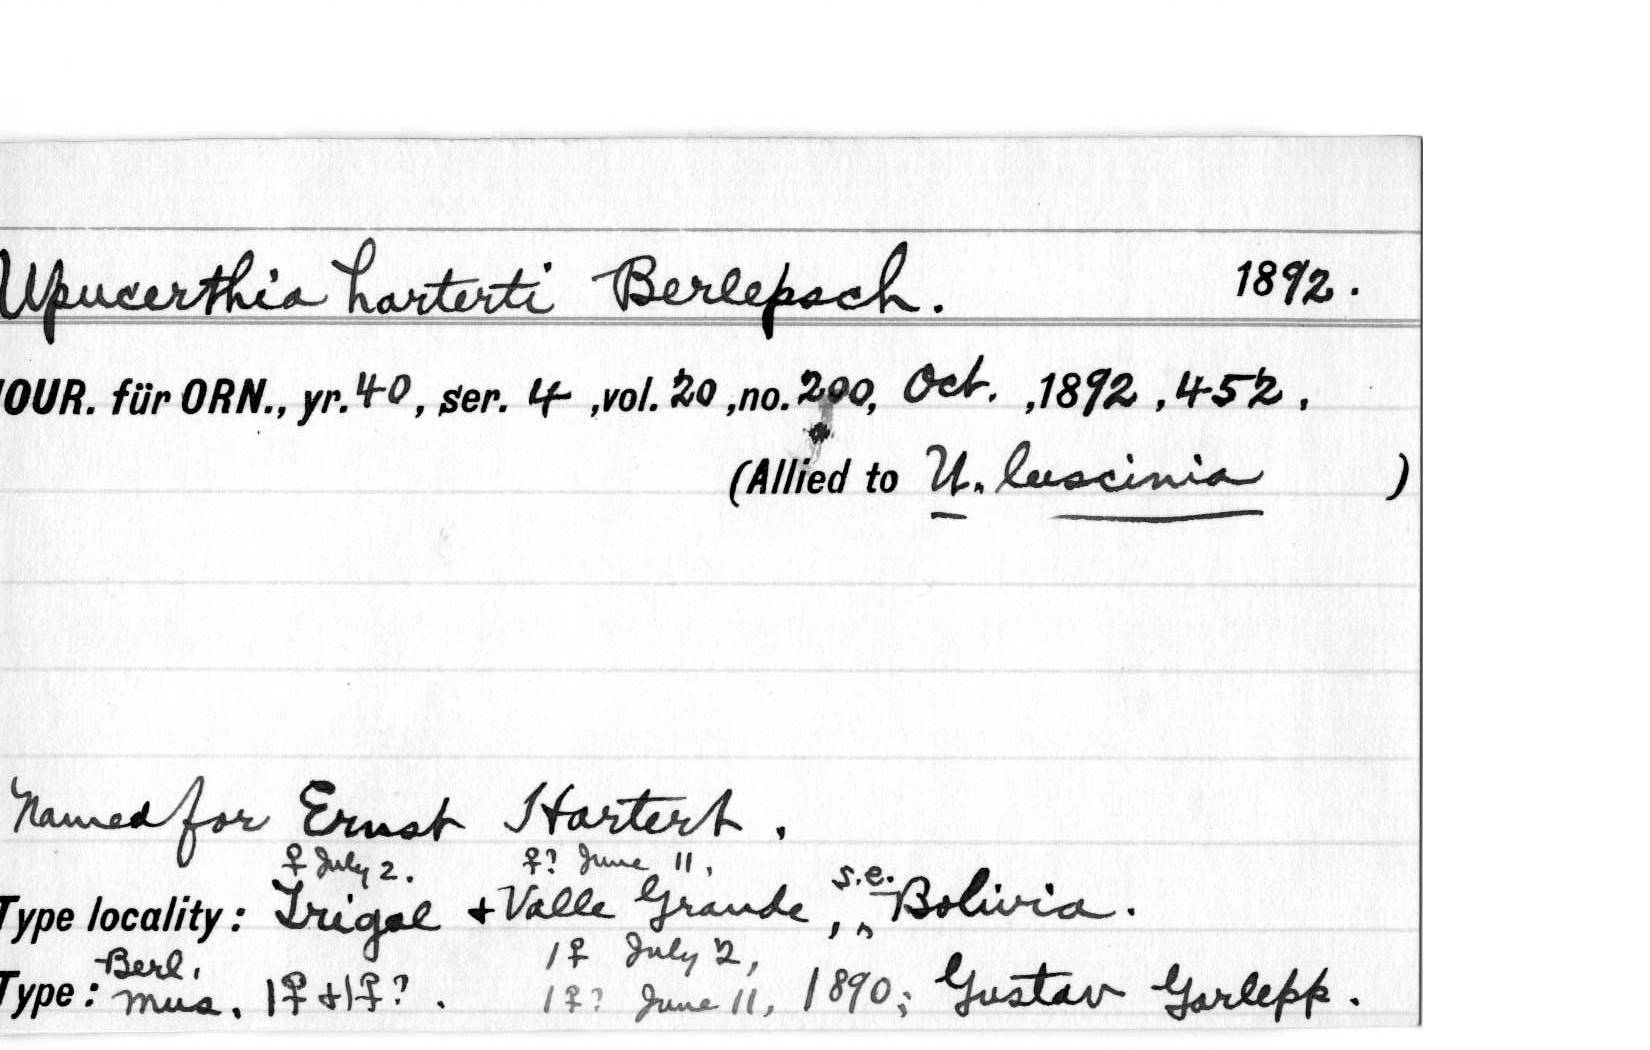 Upucerthia harterti Berlepsch. 1892.
JOUR. für ORN., yr. 40, ser. 4, vol. 20, no. 200, Oct., 1892, 452.
(Allied to U. luscinia )
Named for Ernst Hartert.
♀ July 2. ♀? June 11.
Type locality: Trigal + Valle Grande, s.e. Bolivia.
1♀ July 2,
Type: Berl. Mus. 1♀ + 1♀?. 1♀? June 11, 1890; Gustav Garlepp.